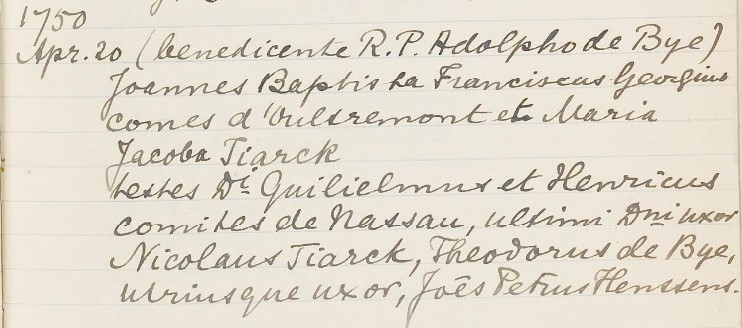 1750
Apr. 20 (benedicente R. P. Adolpho de Bye)
Joannes Baptista Franciscus Georgius
comes d'Oultremont et Maria
Jacoba Tiarck
testes Di Guilielmus et Henricus
comites de Nassau, ultimi Dni uxor
Nicolaus Tiarck, Theodorus de Bye,
utriusque uxor, Joēs Petrus Henssens.